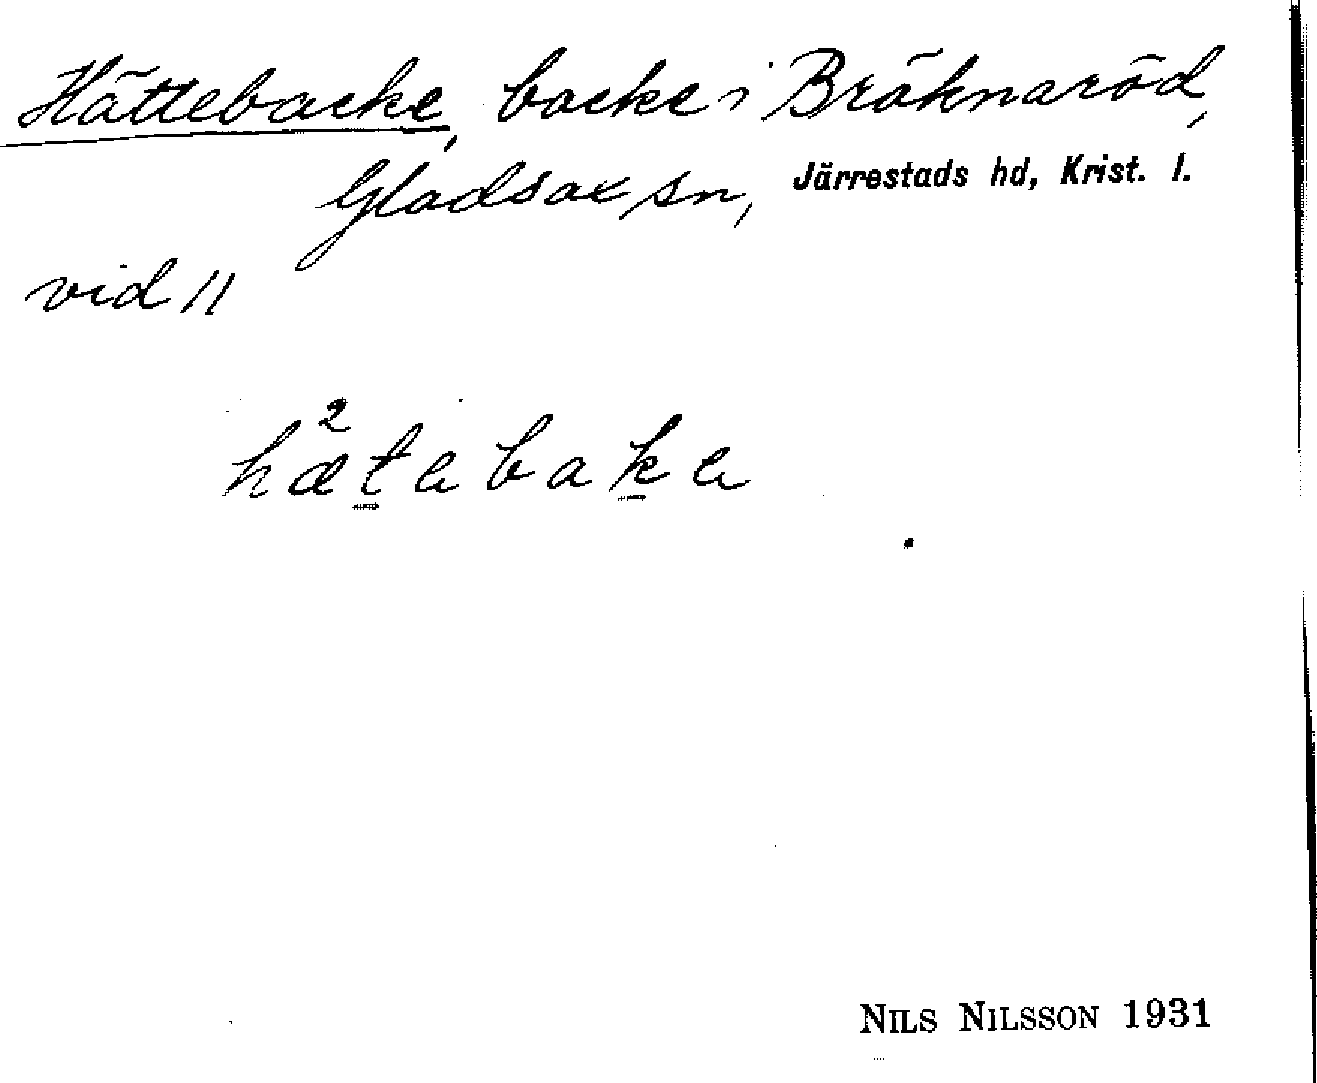 Hättebacke, backe i Bräknaröd,
Gladsax sn, Järrestads hd, Krist. l.
vid 11
hæ²tabaka
NILS NILSSON 1931